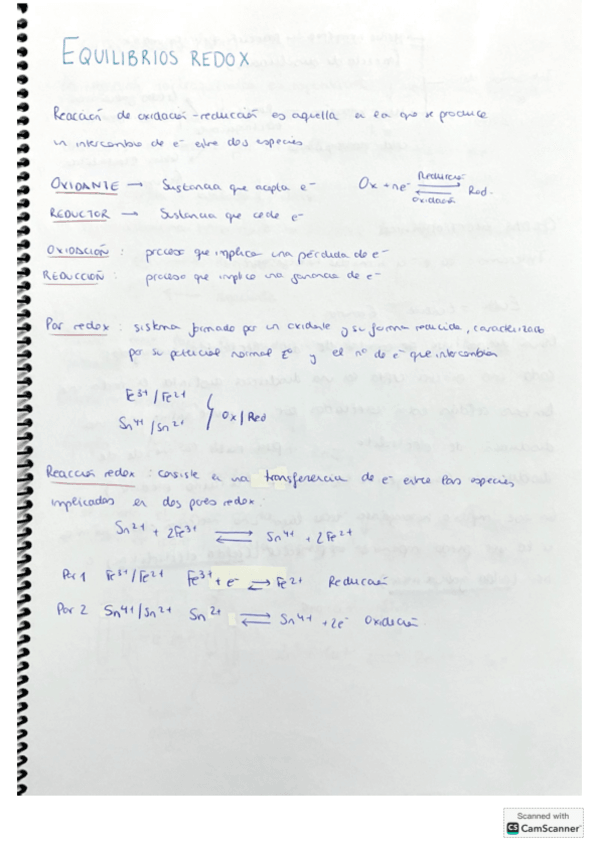 EQUILIBRIOS REDOX
Reacción de oxidación-reducción es aquella en la que se produce
un intercambio de e⁻ entre dos especies
OXIDANTE → Sustancia que acepta e⁻ Ox + ne⁻ ⇌ Red. Reducción Oxidación
REDUCTOR → Sustancia que cede e⁻
OXIDACIÓN : proceso que implica una pérdida de e⁻
REDUCCIÓN : proceso que implica una ganancia de e⁻
Par redox : sistema formado por un oxidante y su forma reducida, caracterizado
por su potencial normal E⁰ y el nº de e⁻ que intercambian
Fe³⁺/Fe²⁺
Sn⁴⁺/Sn²⁺ } Ox/Red
Reacción redox : consiste en una transferencia de e⁻ entre las especies
implicadas en dos pares redox.
Sn²⁺ + 2Fe³⁺ ⇌ Sn⁴⁺ + 2Fe²⁺
Par 1 Fe³⁺/Fe²⁺ Fe³⁺ + e⁻ ⇌ Fe²⁺ Reducción
Par 2 Sn⁴⁺/Sn²⁺ Sn²⁺ ⇌ Sn⁴⁺ + 2e⁻ Oxidación.
Scanned with
CS CamScanner